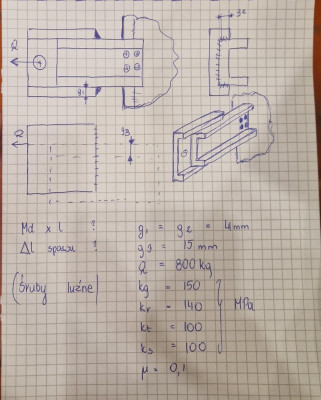 g2
Q
g1
Q
g3
Md x l ?
Δl spawu ?
(Śruby luźne)
g1 = g2 = 4mm
g3 = 15 mm
Q = 800 kg
kg = 150
kr = 140
kt = 100
ks = 100
MPa
μ = 0,1